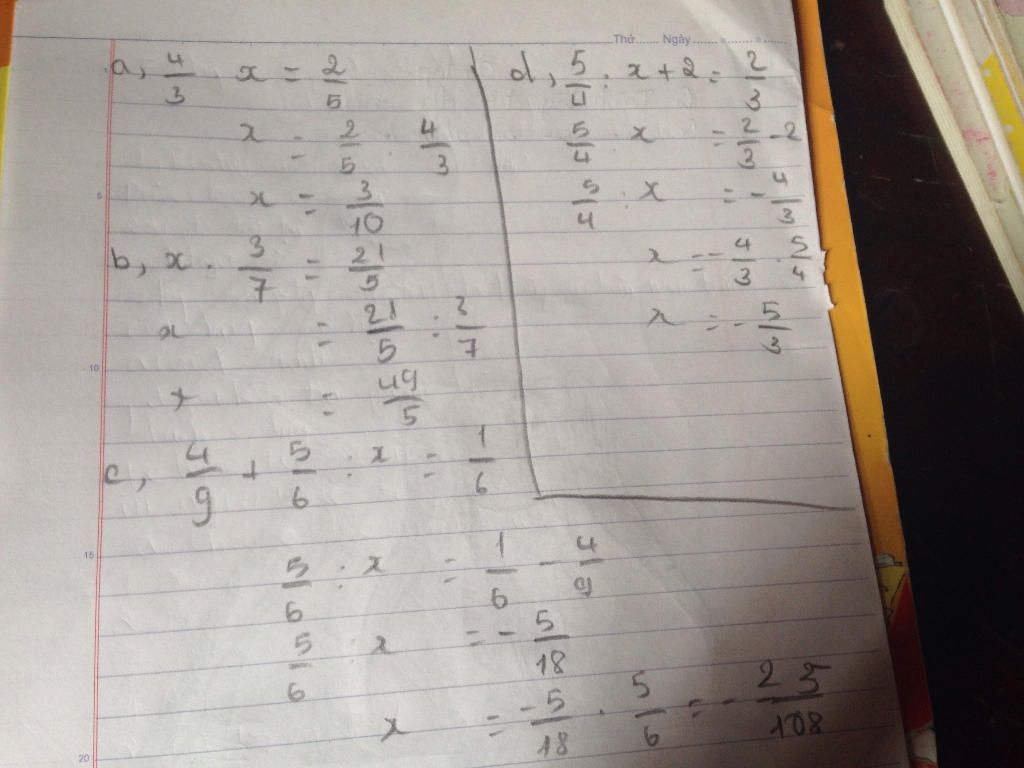 Thứ ...... Ngày ............
a, 4/3 x = 2/5
x = 2/5 . 4/3
x = 3/10
b, x . 3/7 = 21/5
x = 21/5 : 3/7
x = 49/5
c, 4/9 + 5/6 : x = 1/6
5/6 : x = 1/6 - 4/9
5/6 : x = - 5/18
x = -5/18 . 5/6 = - 25/108
d, 5/4 . x + 2 = 2/3
5/4 . x = 2/3 - 2
5/4 . x = - 4/3
x = - 4/3 . 5/4
x = - 5/3
5
10
15
20